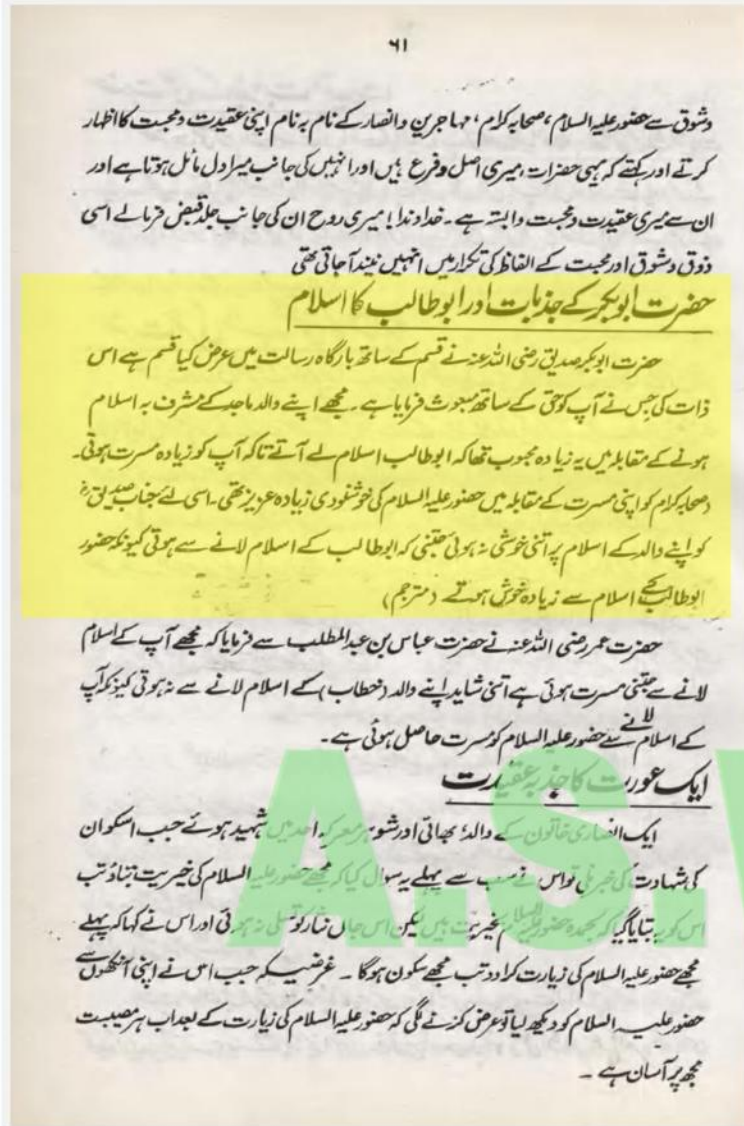 ۶۱
وشوق سے حضور علیہ السلام، صحابہ کرام، مہاجرین و انصار کے نام بہ نام اپنی عقیدت و محبت کا اظہار
کرتے اور کہتے کہ یہی حضرات، میری اصل و فرع ہیں اور انہیں کی جانب میرا دل مائل ہوتا ہے اور
ان سے میری عقیدت و محبت وابستہ ہے۔ خداوندا! میری روح ان کی جانب جلد قبض فرمالے اسی
ذوق و شوق اور محبت کے الفاظ کی تکرار میں انہیں نیند آجاتی تھی
حضرت ابوبکر کے جذبات اور ابوطالب کا اسلام
حضرت ابوبکر صدیق رضی اللہ عنہ نے قسم کے ساتھ بارگاہ رسالت میں عرض کیا قسم ہے اس
ذات کی جس نے آپ کو حق کے ساتھ مبعوث فرمایا ہے۔ مجھے اپنے والد ماجد کے مشرف بہ اسلام
ہونے کے مقابلہ میں یہ زیادہ محبوب تھا کہ ابوطالب اسلام لے آتے تاکہ آپ کو زیادہ مسرت ہوتی۔
(صحابہ کرام کو اپنی مسرت کے مقابلہ میں حضور علیہ السلام کی خوشنودی زیادہ عزیز تھی۔ اسی لئے جناب صدیقؓ
کو اپنے والد کے اسلام پر اتنی خوشی نہ ہوئی جتنی کہ ابوطالب کے اسلام لانے سے ہوتی کیونکہ حضور
ابوطالب کے اسلام سے زیادہ خوش ہوتے (مترجم)
حضرت عمر رضی اللہ عنہ نے حضرت عباس بن عبدالمطلب سے فرمایا کہ مجھے آپ کے اسلام
لانے سے جتنی مسرت ہوئی ہے اتنی شاید اپنے والد (خطاب) کے اسلام لانے سے نہ ہوتی کیونکہ آپ
کے اسلام لانے سے حضور علیہ السلام کو مسرت حاصل ہوئی ہے۔
ایک عورت کا جذبہ عقیدت
ایک انصاری خاتون کے والد، بھائی اور شوہر معرکہ احد میں شہید ہوئے جب اسکو ان
کی شہادت کی خبر ملی تو اس نے سب سے پہلے یہ سوال کیا کہ مجھے حضور علیہ السلام کی خیریت بتاؤ تب
اس کو یہ بتایا گیا کہ بحمدہ حضور علیہ السلام بخیریت ہیں لیکن اس جاں نثار کو تسلی نہ ہوئی اور اس نے کہا کہ پہلے
مجھے حضور علیہ السلام کی زیارت کرا دو تب مجھے سکون ہوگا۔ غرضیکہ جب اس نے اپنی آنکھوں سے
حضور علیہ السلام کو دیکھ لیا تو عرض کرنے لگی کہ حضور علیہ السلام کی زیارت کے بعد اب ہر مصیبت
مجھ پر آسان ہے۔
A.S.